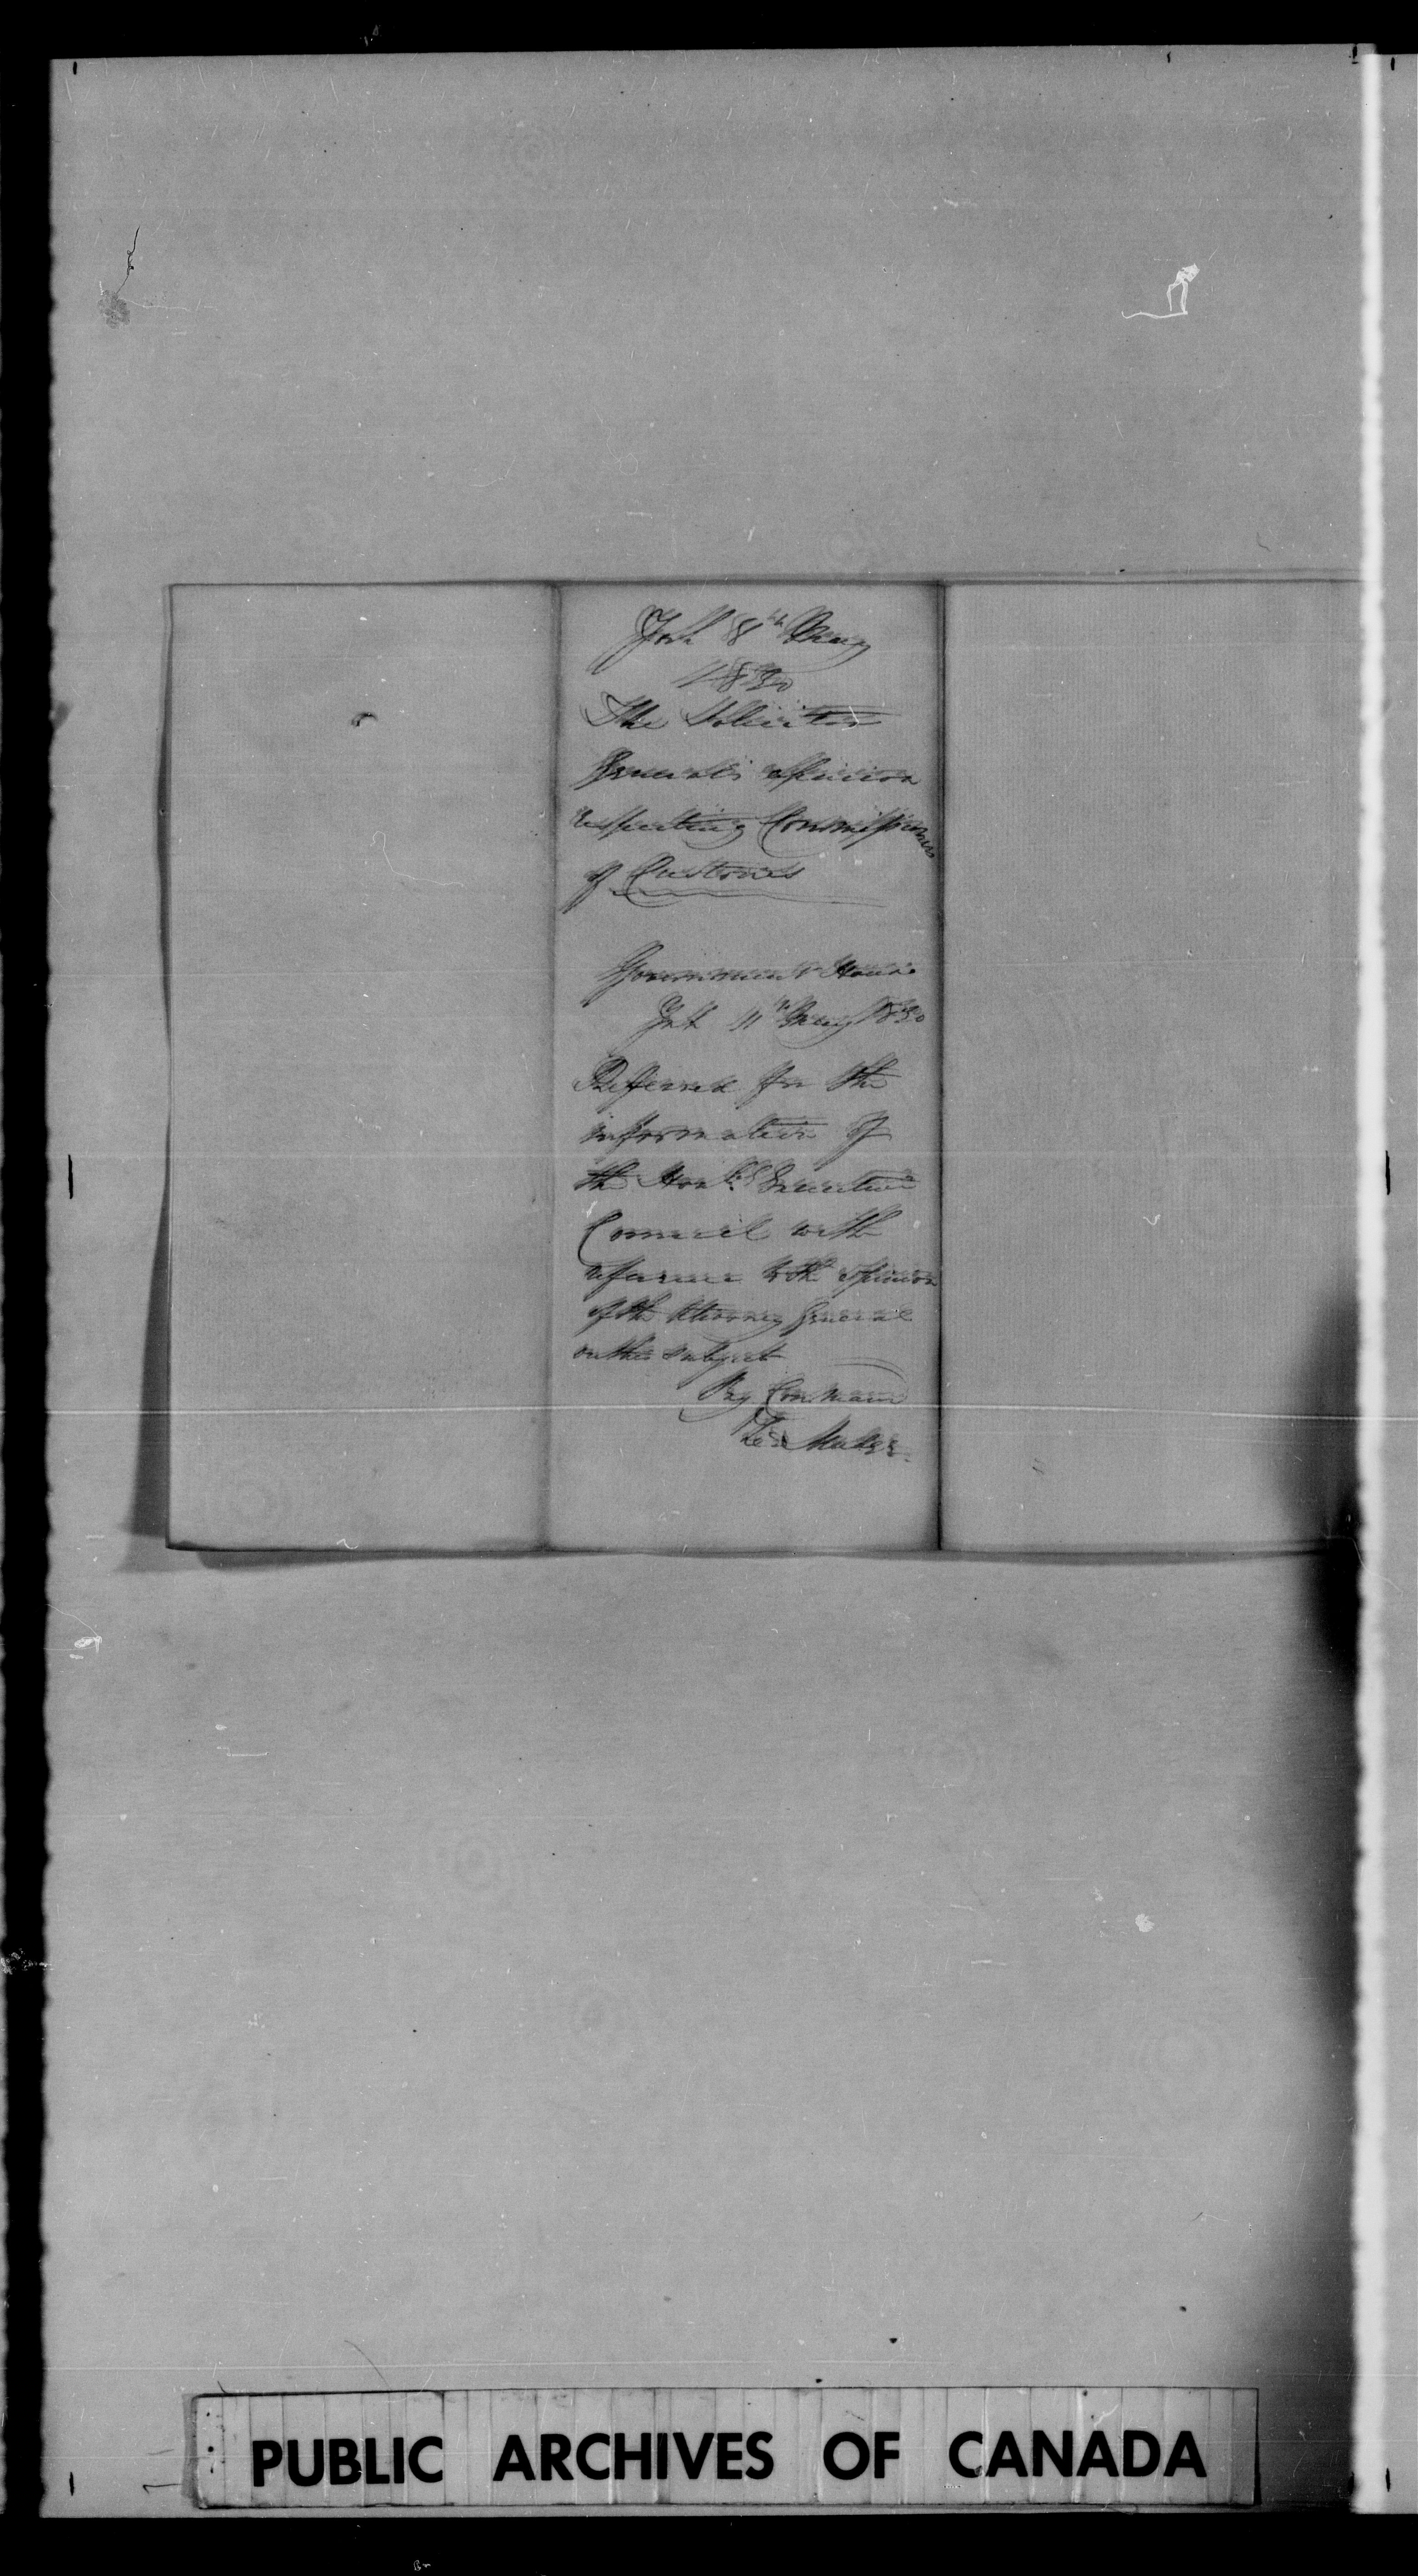 York 8th May
1830
The Solicitor
General's opinion
respecting Commissioners
of Customs
Government House
York 11th May 1830
Referred for the
information of
the Honble Executive
Council with
reference to the opinion
of the Attorney General
on this subject
By Command
Z. Mudge
PUBLIC ARCHIVES OF CANADA